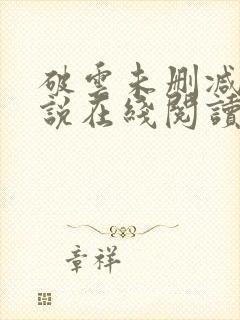 破雲未刪減
說在綫閱讀
章祥